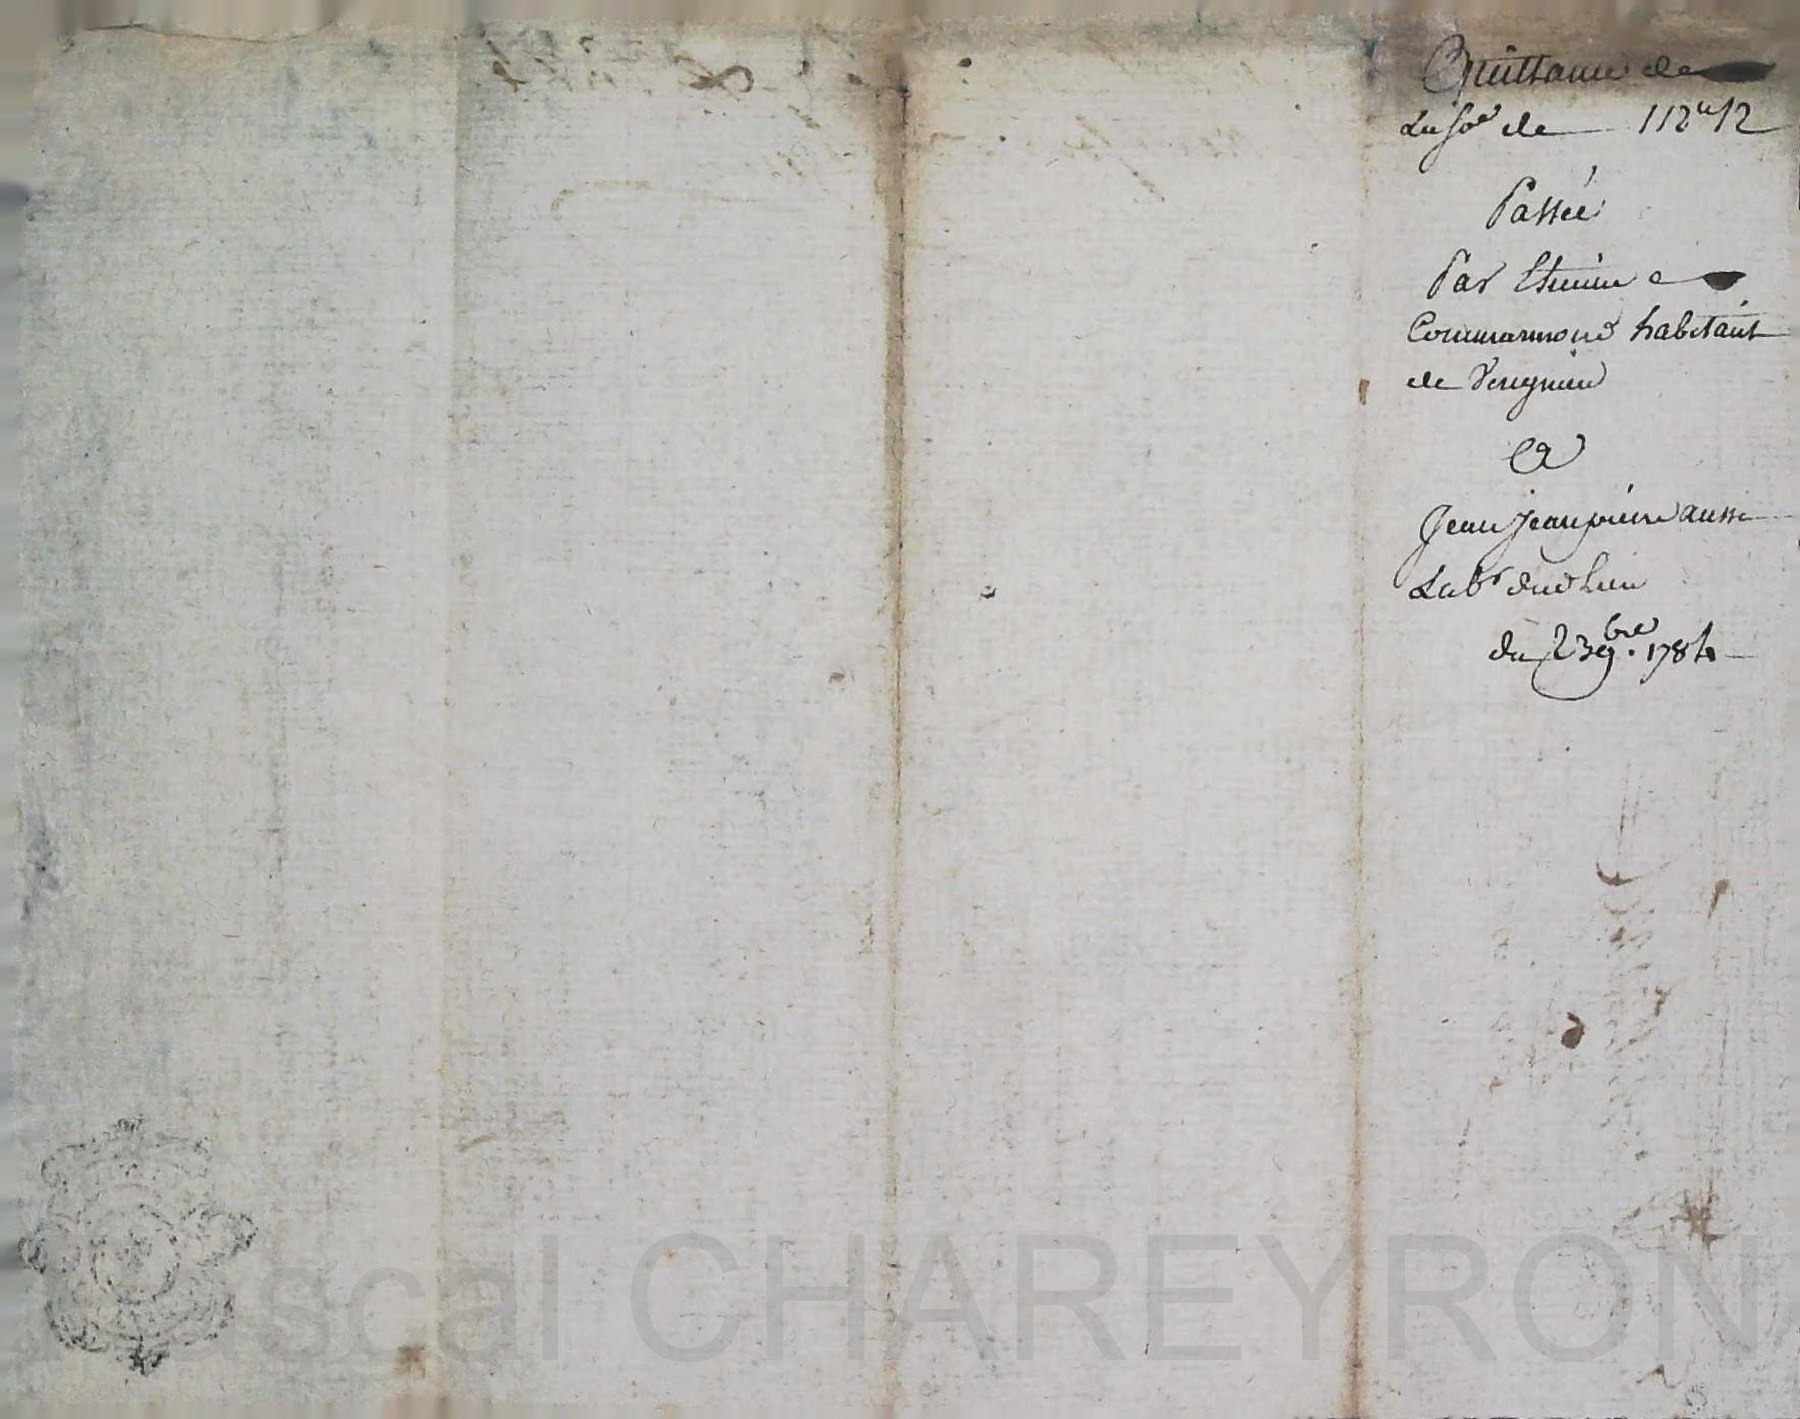 Quittance de
La so^e de 112^# 12
Passée
Par Etienne
Commarmond habitant
de Verignieu
A
Jean Jeanpierre aussi
Lab^r dud lieu
du 23 9^bre. 1784
Pascal CHAREYRON